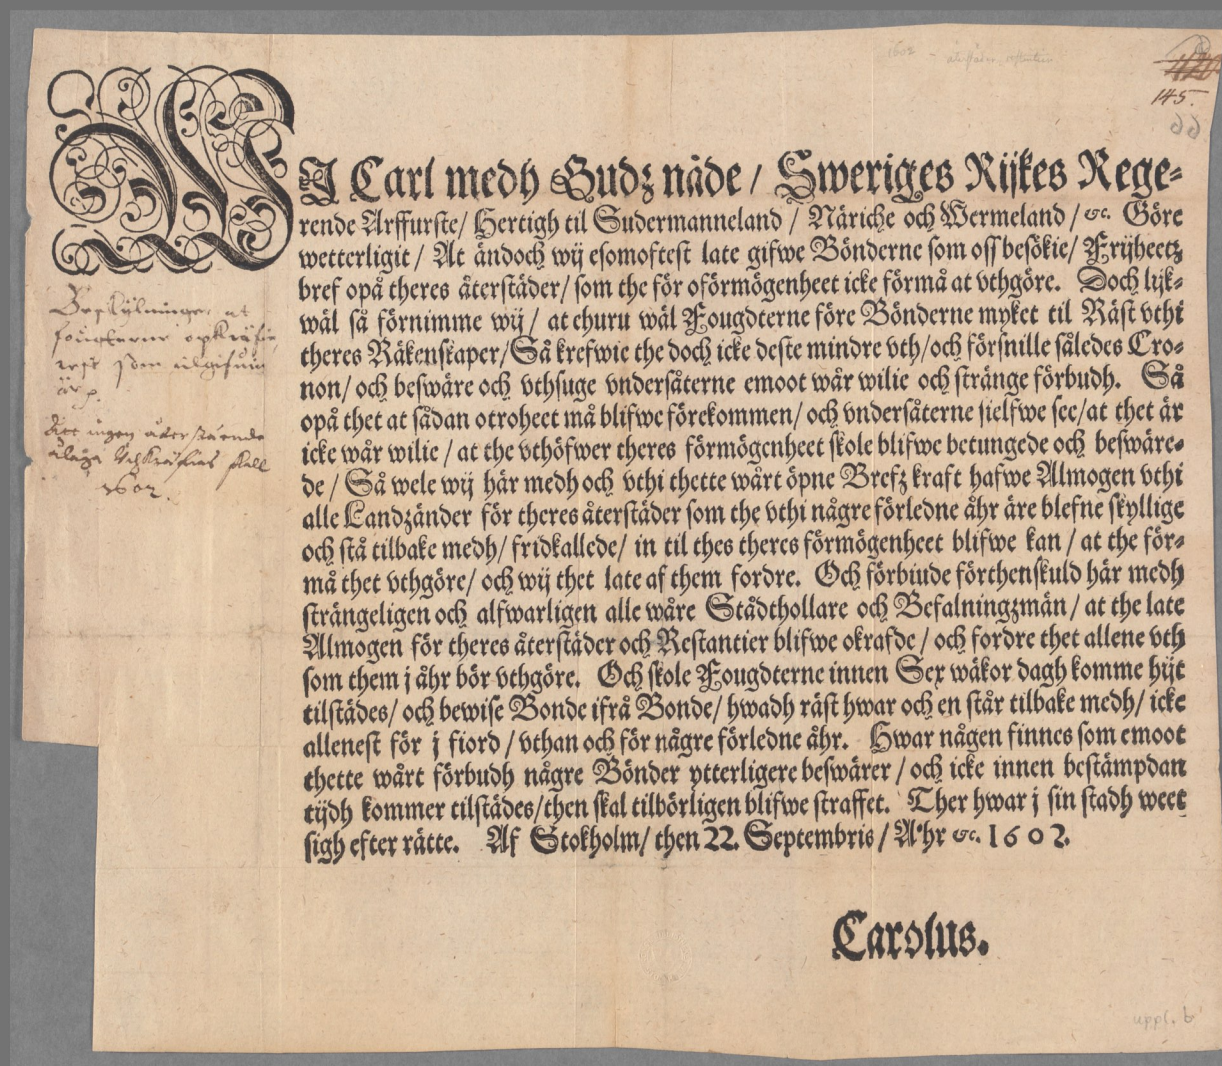 1602
145.
WJ Carl medh Gudz nåde / Sweriges Rijkes Rege-
rende Arffurste/ Hertigh til Sudermanneland / Näriche och Wermeland / &c. Göre
wetterligit / At ändoch wij esomoftest late gifwe Bönderne som oss besökie/ Frijheetz
bref opå theres återstäder/ som the för oförmögenheet icke förmå at vthgöre. Doch lijk-
wäl så förnimme wij / at ehuru wäl Fougdterne före Bönderne myket til Räst vthi
theres Räkenskaper/Så krefwie the doch icke deste mindre vth/och försnille således Cro-
non/ och beswäre och vthsuge vndersåterne emoot wår wilie och stränge förbudh. Så
opå thet at sådan otroheet må blifwe förekommen/ och vndersåterne sielfwe see/at thet är
icke wår wilie / at the vthöfwer theres förmögenheet skole blifwe betungede och beswäre-
de / Så wele wij här medh och vthi thette wårt öpne Brefz kraft hafwe Almogen vthi
alle Landzänder för theres återstäder som the vthi någre förledne åhr äre blefne skyllige
och stå tilbake medh/ fridkallede/ in til thes theres förmögenheet blifwe kan / at the för-
må thet vthgöre/ och wij thet late af them fordre. Och förbiude förthenskuld här medh
strängeligen och alfwarligen alle wåre Stådthollare och Befalningzmän / at the late
Almogen för theres återstäder och Restantier blifwe okrafde / och fordre thet allene vth
som them j åhr bör vthgöre. Och skole Fougdterne innen Sex wäkor dagh komme hijt
tilstädes/ och bewise Bonde ifrå Bonde/ hwadh räst hwar och en står tilbake medh/ icke
allenest för j fiord / vthan och för någre förledne åhr. Hwar någen finnes som emoot
thette wårt förbudh någre Bönder ytterligere beswärer / och icke innen bestämpdan
tijdh kommer tilstädes/then skal tilbörligen blifwe straffet. Ther hwar j sin stadh weet
sigh efter rätte. Af Stokholm/ then 22. Septembris / Åhr &c. 1602.
Carolus.
fougterne opkräfie
rest som
ingen återstående
skall
1602.
uppl. b